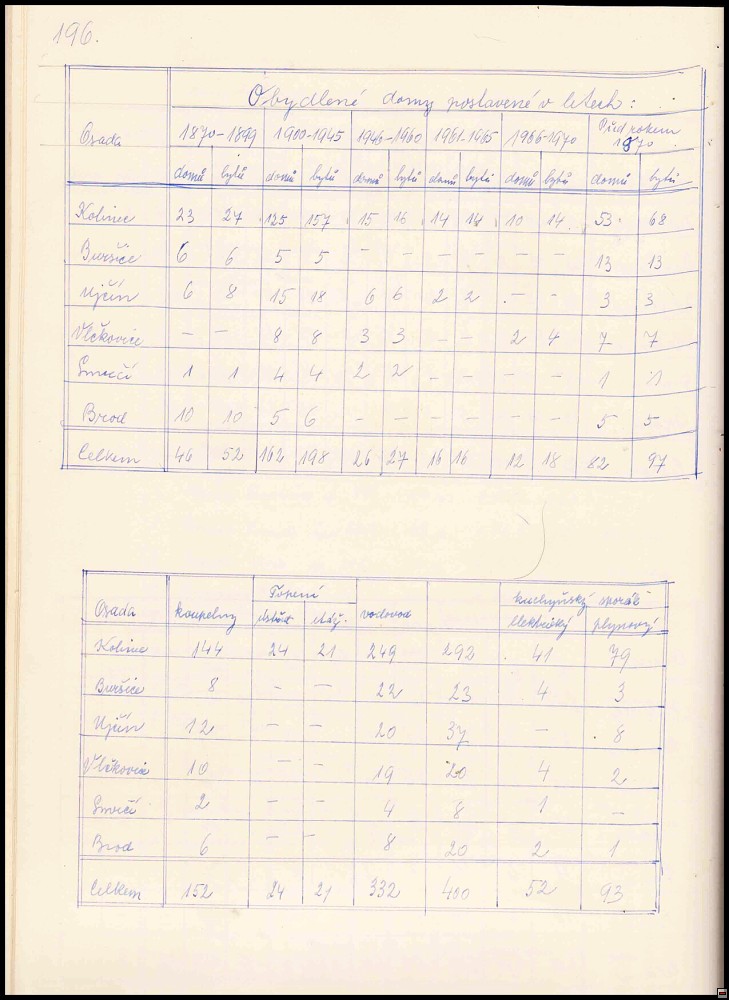 196.
Obydlené domy postavené v letech:
Osada 1870-1899 1900-1945 1946-1960 1961-1965 1966-1970 Před rokem 1870
domů bytů domů bytů domů bytů domů bytů domů bytů domů bytů
Kolinec 23 27 125 157 15 16 14 14 10 14 53 68
Buršice 6 6 5 5 - - - - - - 13 13
Ujčín 6 8 15 18 6 6 2 2 - - 3 3
Vlčkovice - - 8 8 3 3 - - 2 4 7 7
Smrčí 1 1 4 4 2 2 - - - - 1 1
Brod 10 10 5 6 - - - - - - 5 5
Celkem 46 52 162 198 26 27 16 16 12 18 82 97
Topení kuchyňský sporák
Osada koupelny ústřed. etáž. vodovod elektrický plynový
Kolinec 144 24 21 249 292 41 79
Buršice 8 - - 22 23 4 3
Ujčín 12 - - 20 37 - 8
Vlčkovice 10 - - 19 20 4 2
Smrčí 2 - - 4 8 1 -
Brod 6 - - 8 20 2 1
Celkem 152 24 21 332 400 52 93